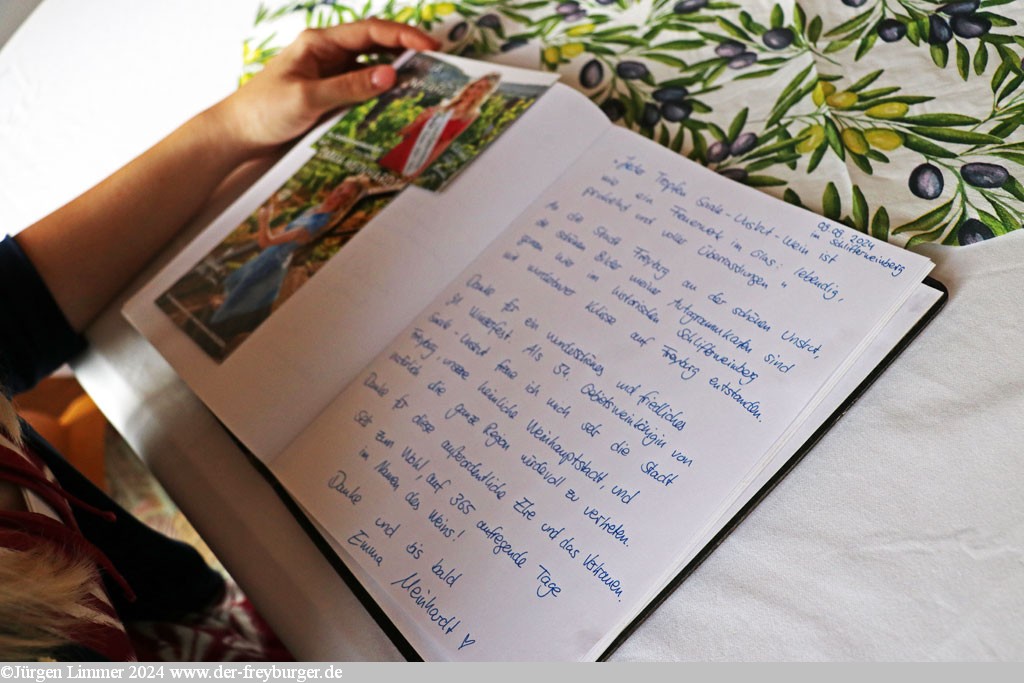 09.09.2024
im Schlifterweinberg
"Jeder Tropfen Saale-Unstrut-Wein ist
wie ein Feuerwerk im Glas: lebendig,
prickelnd und voller Überraschungen"
An die Stadt Freyburg an der schönen Unstrut,
die schönen Bilder meiner Autogrammkarten sind
genau hier im historischen Schlifterweinberg
mit wunderbarer Kulisse auf Freyburg entstanden.
Danke für ein wunderschönes und friedliches
Winzerfest. Als 54. Gebietsweinkönigin von
Saale-Unstrut freue ich mich sehr die Stadt
Freyburg, unsere heimliche Weinhauptstadt, und
natürlich die ganze Region würdevoll zu vertreten.
Danke für diese außerordentliche Ehre und das Vertrauen.
Seit zum Wohl, auf 365 aufregende Tage
im Namen des Weins!
Danke und bis bald
Emma Meinhardt ♡
©Jürgen Limmer 2024 www.der-freyburger.de